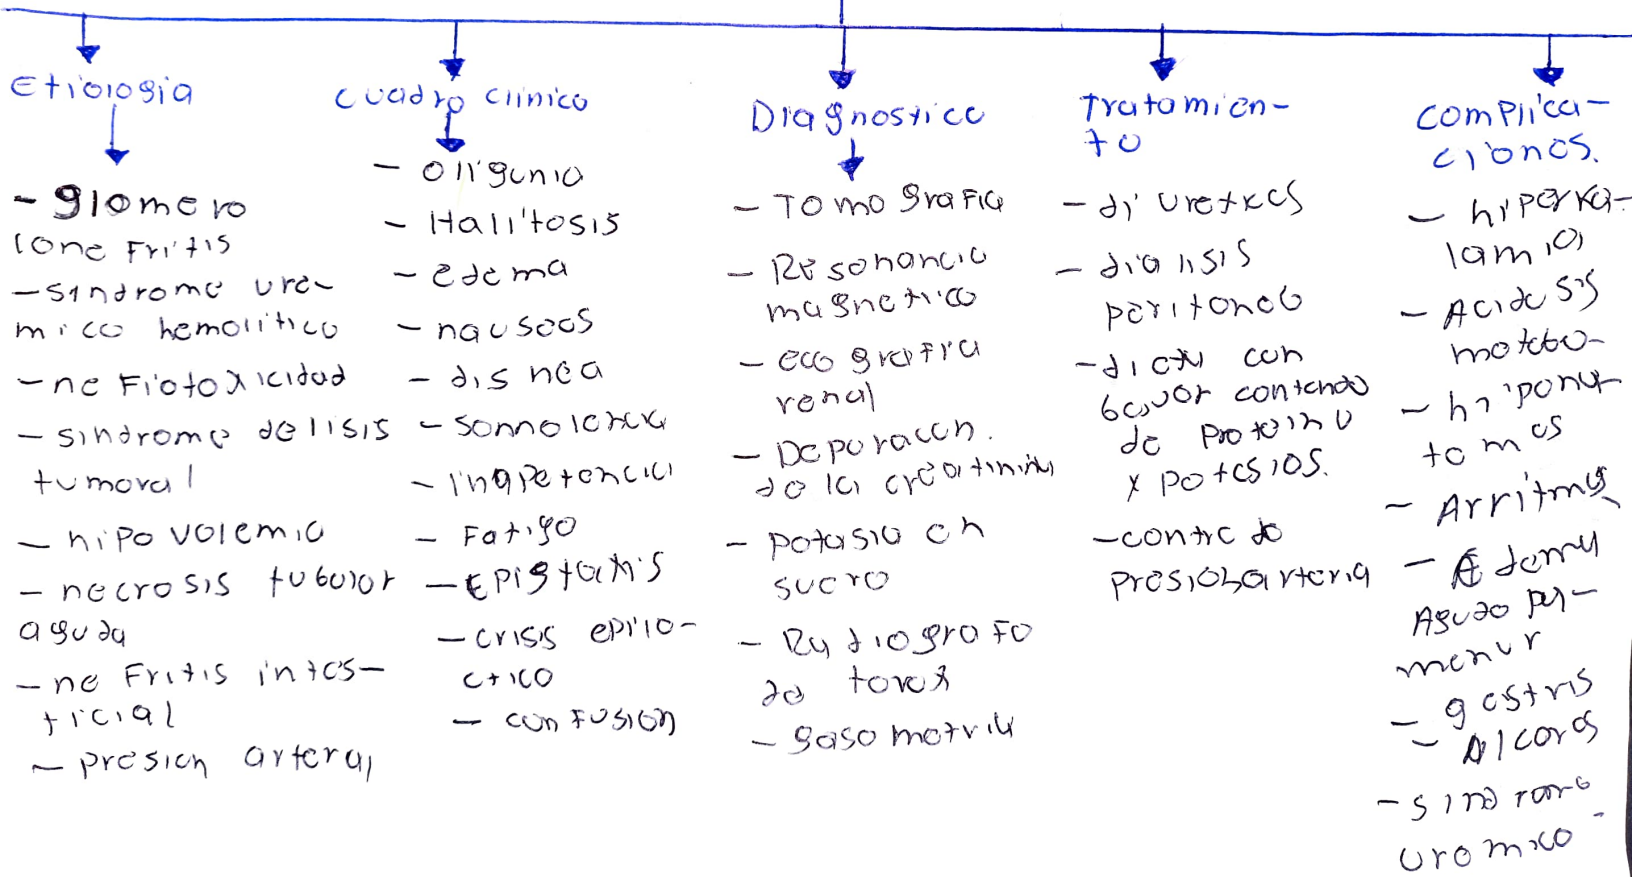 Etiologia
- glomero
lone Fritis
- sindrome ure-
mico hemolitico
- ne Frotoxicidad
- sindrome de lisis
tumoral
- hipo volemia
- necrosis tubular
aguda
- ne Fritis inters-
ticial
- presion arterial
cuadro clinico
- oliguria
- Halitosis
- edema
- nauseas
- disnea
- somnolencia
- inapetencia
- Fatiga
- Epistaxis
- crisis epile-
ctica
- conFusion
Diagnostico
- Tomo graFia
- Resonancia
magnetica
- eco graFia
renal
- Depuracion.
de la creatinina
- potasio en
suero
- Radiogra Fa
de torax
- gaso metria
tratamien-
to
- di ureticos
- dialisis
peritoneo
- dieta con
bajor contendo
de proteina
x potasios.
- contro de
presion arteria
complica-
ciones.
- hiperka-
lamia
- Acidosis
metabo-
- hiponat
- Arritmias
- Edema
Agudo pul-
monar
- gastris
- Alceras
- sindrome
uremico